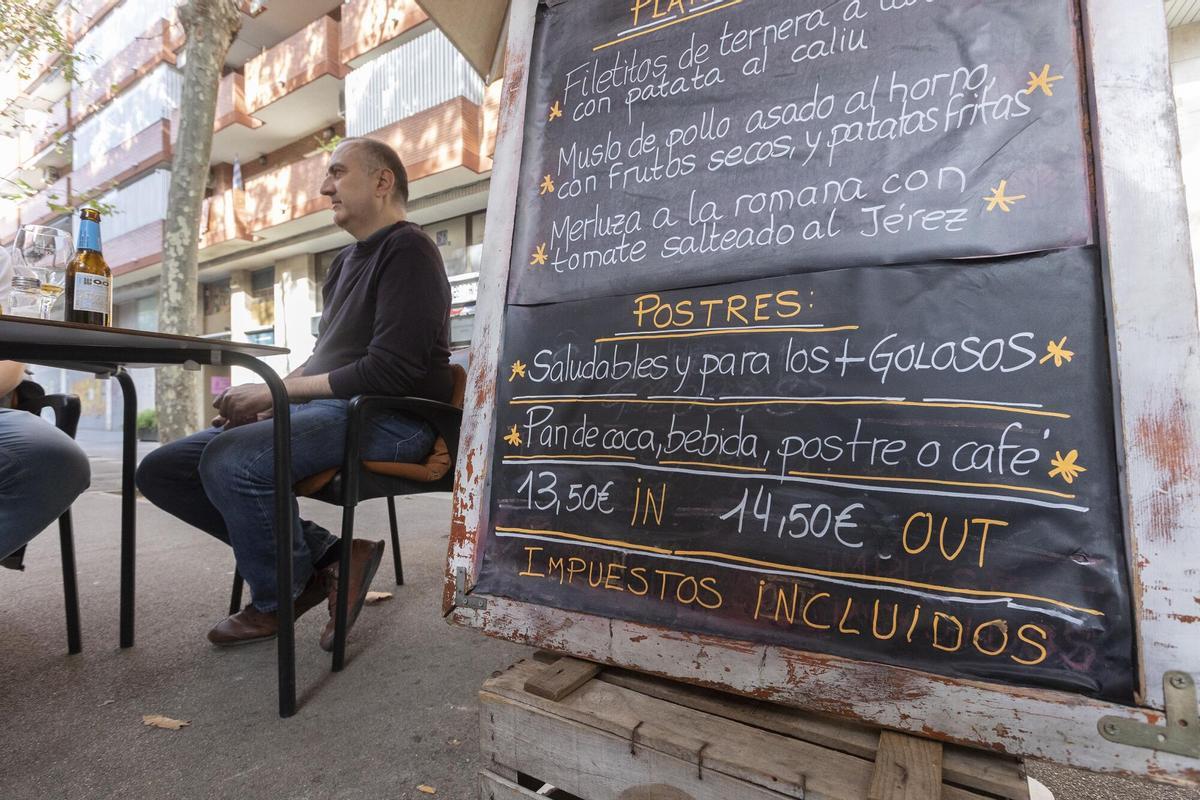 Filetitos de ternera a la
con patata al caliu
Muslo de pollo asado al horno,
con frutos secos, y patatas fritas
Merluza a la romana con
tomate salteado al Jérez
POSTRES:
Saludables y para los + GOLOSOS
Pan de coca, bebida, postre o café
13,50€ IN 14,50€ OUT
IMPUESTOS INCLUIDOS